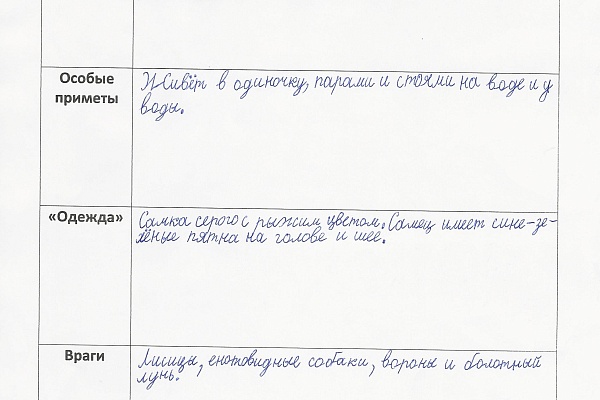 Особые
приметы
Живёт в одиночку, парами и стоями на воде и у
воды.
«Одежда»
Самка серого с рыжим цветом. Самец имеет сине-зе-
лёные пятна на голове и шее.
Враги
Лисицы, енотовидные собаки, вороны и болотный
лунь.